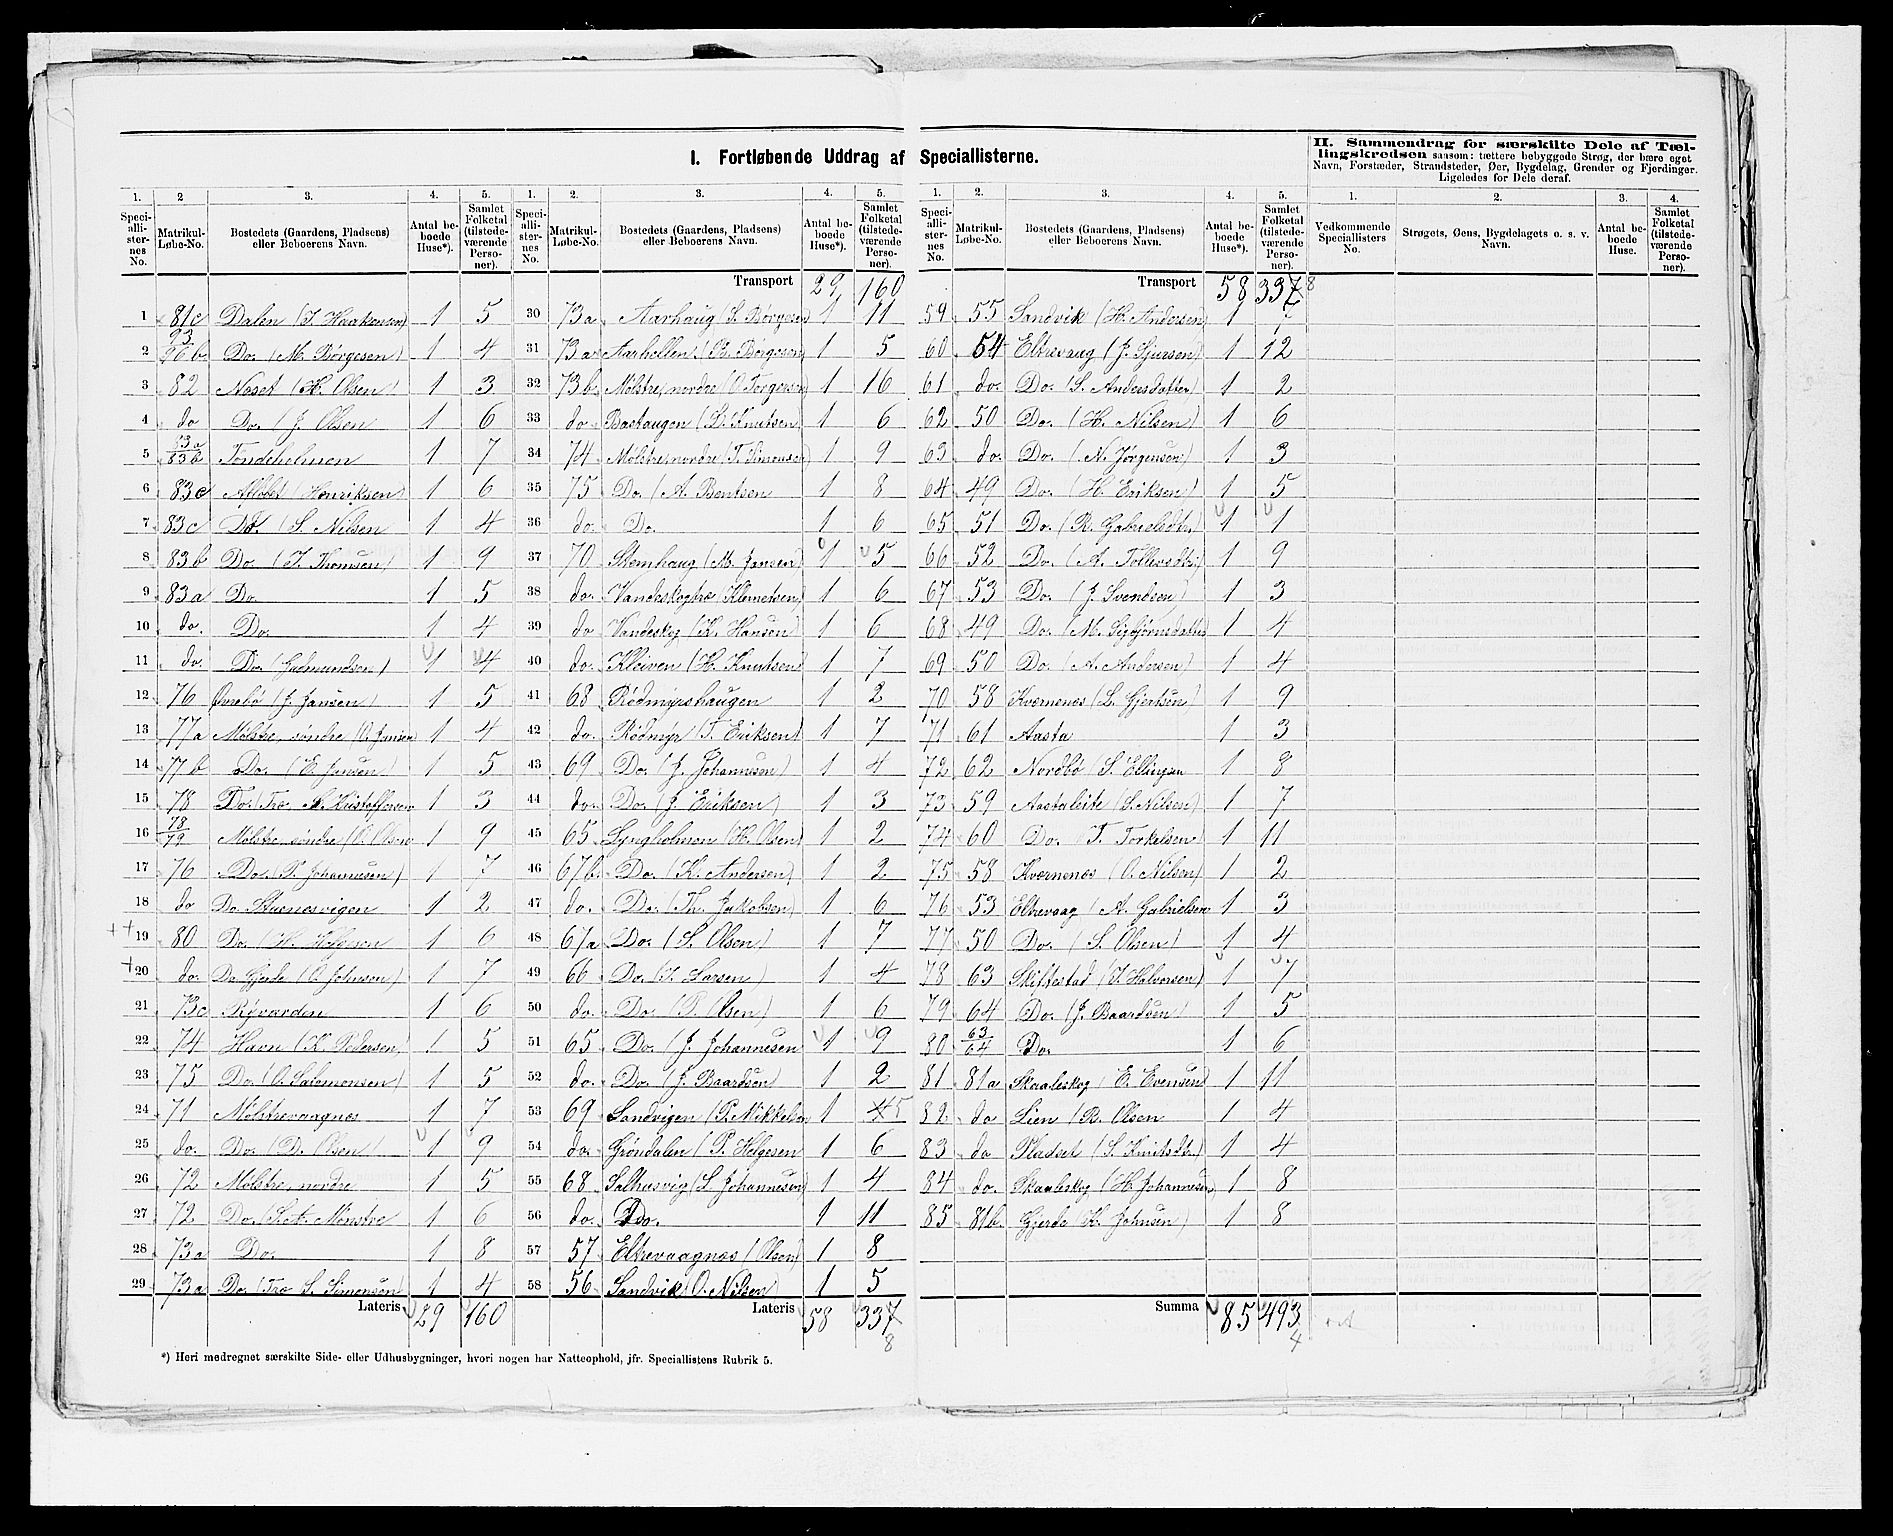 I. Fortløbende Uddrag af Speciallisterne.
II. Sammendrag for særskilte Dele af Tællingskredsen saasom: tættere bebyggede Strøg, der bære eget
Navn, Forstæder, Strandsteder, Øer, Bygdelag, Grender og Fjerdinger.
Ligeledes for Dele deraf.
1. 2 3. 4. 5.
Speciallisternes No. Matrikul-Løbe-No. Bostedets (Gaardens, Pladsens) eller Beboerens Navn. Antal beboede Huse*). Samlet Folketal (tilstedeværende Personer).
1 81c Dalen (T. Haakensen) 1 5
2 93 96b Do. (M. Børgesen) 1 4
3 82 Neset (H. Olsen) 1 3
4 do Do. (J. Olsen 1 6
5 83a 83b Tondeholmen 1 7
6 83c Afløbet (Henriksen) 1 6
7 83c Do. (S. Nilsen 1 4
8 83b Do. (T. Thomsen) 1 9
9 83a Do 1 5
10 do. Do. 1 4
11 do. Do. (Gudmundsen) 1 4
12 76 Øvrebø (J. Jansen) 1 5
13 77a Mølstre, søndre (O. Jansen 1 4
14 77b Do. (E. Jansen) 1 5
15 78 Do. (Træ Kristoffersen 1 3
16 78 79 Mølstre, søndre (O. Olsen 1 9
17 76 Do. (P. Johannesen) 1 7
18 do Do. Stuenesvigen 1 2
++ 19 80 Do. (H. Helgesen 1 6
+ 20 do. Do Gjerde (O. Johnsen) 1 7
21 73c Røvarden 1 6
22 74 Havn (K. Pedersen) 1 5
23 75 Do. (O. Salomonsen) 1 5
24 71 Mølstrevaagnes 1 7
25 do. Do. (D. Olsen) 1 9
26 72 Mølstre, nordre 1 5
27 72 Do. (S. A. Mønstre 1 6
28 73a Do. 1 8
29 73a Do. (Træ S. Simonsen) 1 4
Lateris 29 160
1. 2. 3. 4. 5.
Speciallisternes No. Matrikul-Løbe-No. Bostedets (Gaardens, Pladsens) eller Beboerens Navn. Antal beboede Huse*). Samlet Folketal (tilstedeværende Personer).
Transport 29 160
30 73a Aarhaug (S. Børgesen) 1 11
31 73a Aarhellen (B. Børgesen) 1 5
32 73b Mølstre, nordre (O. Torgersen 1 16
33 do Bastaugen (L. Knutsen) 1 6
34 74 Mølstre, nordre (T. Simonsen) 1 9
35 75 Do. (A. Bentsen 1 8
36 do. Do. 1 6
37 70 Stemhaug (M. Jansen) 1 5
38 do. Vandeskogtræ (Klemetsen) 1 6
39 do Vandeskog (K. Hansen) 1 6
40 do. Kleiven (H. Knutsen) 1 7
41 68 Rødmyrshaugen 1 2
42 do. Rødmyr (T. Eriksen) 1 7
43 69 Do. (J. Johannesen) 1 4
44 do. Do. (J. Eriksen) 1 3
45 65 Lyngholmen (H. Olsen) 1 2
46 67b Do. (K. Andersen) 1 2
47 do. Do. (Th. Jakobsen) 1 6
48 67a Do. (S. Olsen) 1 7
49 66 Do. (T. Larsen) 1 4
50 do. Do. (P. Olsen) 1 6
51 65 Do. (J. Johannesen 1 9
52 do. Do. (J. Baardsen) 1 2
53 69 Sandvigen (P. Mikkelsen 1 5
54 do. Grøndalen (P. Helgesen 1 6
55 68 Salhusvig (L. Johannesen) 1 4
56 do. Do. 1 11
57 57 Eltrevaagnes (Olsen) 1 8
58 56 Sandvik (O. Nilsen) 1 5
Lateris 58 337 8
1. 2. 3. 4. 5.
Speciallisternes No. Matrikul-Løbe-No. Bostedets (Gaardens, Pladsens) eller Beboerens Navn. Antal beboede Huse*). Samlet Folketal (tilstedeværende Personer).
Transport 58 337 8
59 55 Sandvik (H. Andersen) 1 7
60 54 Eltrevaag (J. Sjursen) 1 12
61 do. Do. (S. Andersdatter) 1 2
62 50 Do. (H. Nilsen) 1 6
63 do. Do. (N. Jørgensen) 1 3
64 49 Do. (H. Eriksen) 1 5
65 51 Do. (R. Gabrielsdtr.) 1 1
66 52 Do. (A. Tollevsdtr.) 1 9
67 53 Do. (J. Svendsen) 1 3
68 49 Do. (M. Sigbjørnsdatter 1 4
69 50 Do. (A. Andersen) 1 4
70 58 Kvernenes (L. Gjertsen) 1 9
71 61 Aasta 1 3
72 62 Nordbø (S. Ellingsen 1 8
73 59 Aastaleite (S. Nilsen) 1 7
74 60 Do. T. Torkelsen) 1 11
75 58 Kvernenes (O. Nilsen) 1 2
76 53 Eltrevaag (A. Gabrielsen 1 3
77 50 Do. (S. Olsen) 1 4
78 63 Skiftestad (T. Halvorsen) 1 7
79 64 Do. (J. Baardsen) 1 5
80 63 64 Do. 1 6
81 81a Skaaleskog (E. Evensen) 1 11
82 do Lien (B. Olsen 1 4
83 do Pladset (S. Knutsdtr.) 1 4
84 do. Skaaleskog (H. Johannesen) 1 8
85 81b. Gjerde (K. Johnsen) 1 8
Summa 85 493 4
1. 2. 3. 4.
Vedkommende Speciallisters No. Strøgets, Øens, Bygdelagets o. s. v. Navn. Antal beboede Huse. Samlet Folketal (tilstedeværende Personer).
*) Heri medregnet særskilte Side- eller Udhusbygninger, hvori nogen har Natteophold, jfr. Speciallistens Rubrik 5.